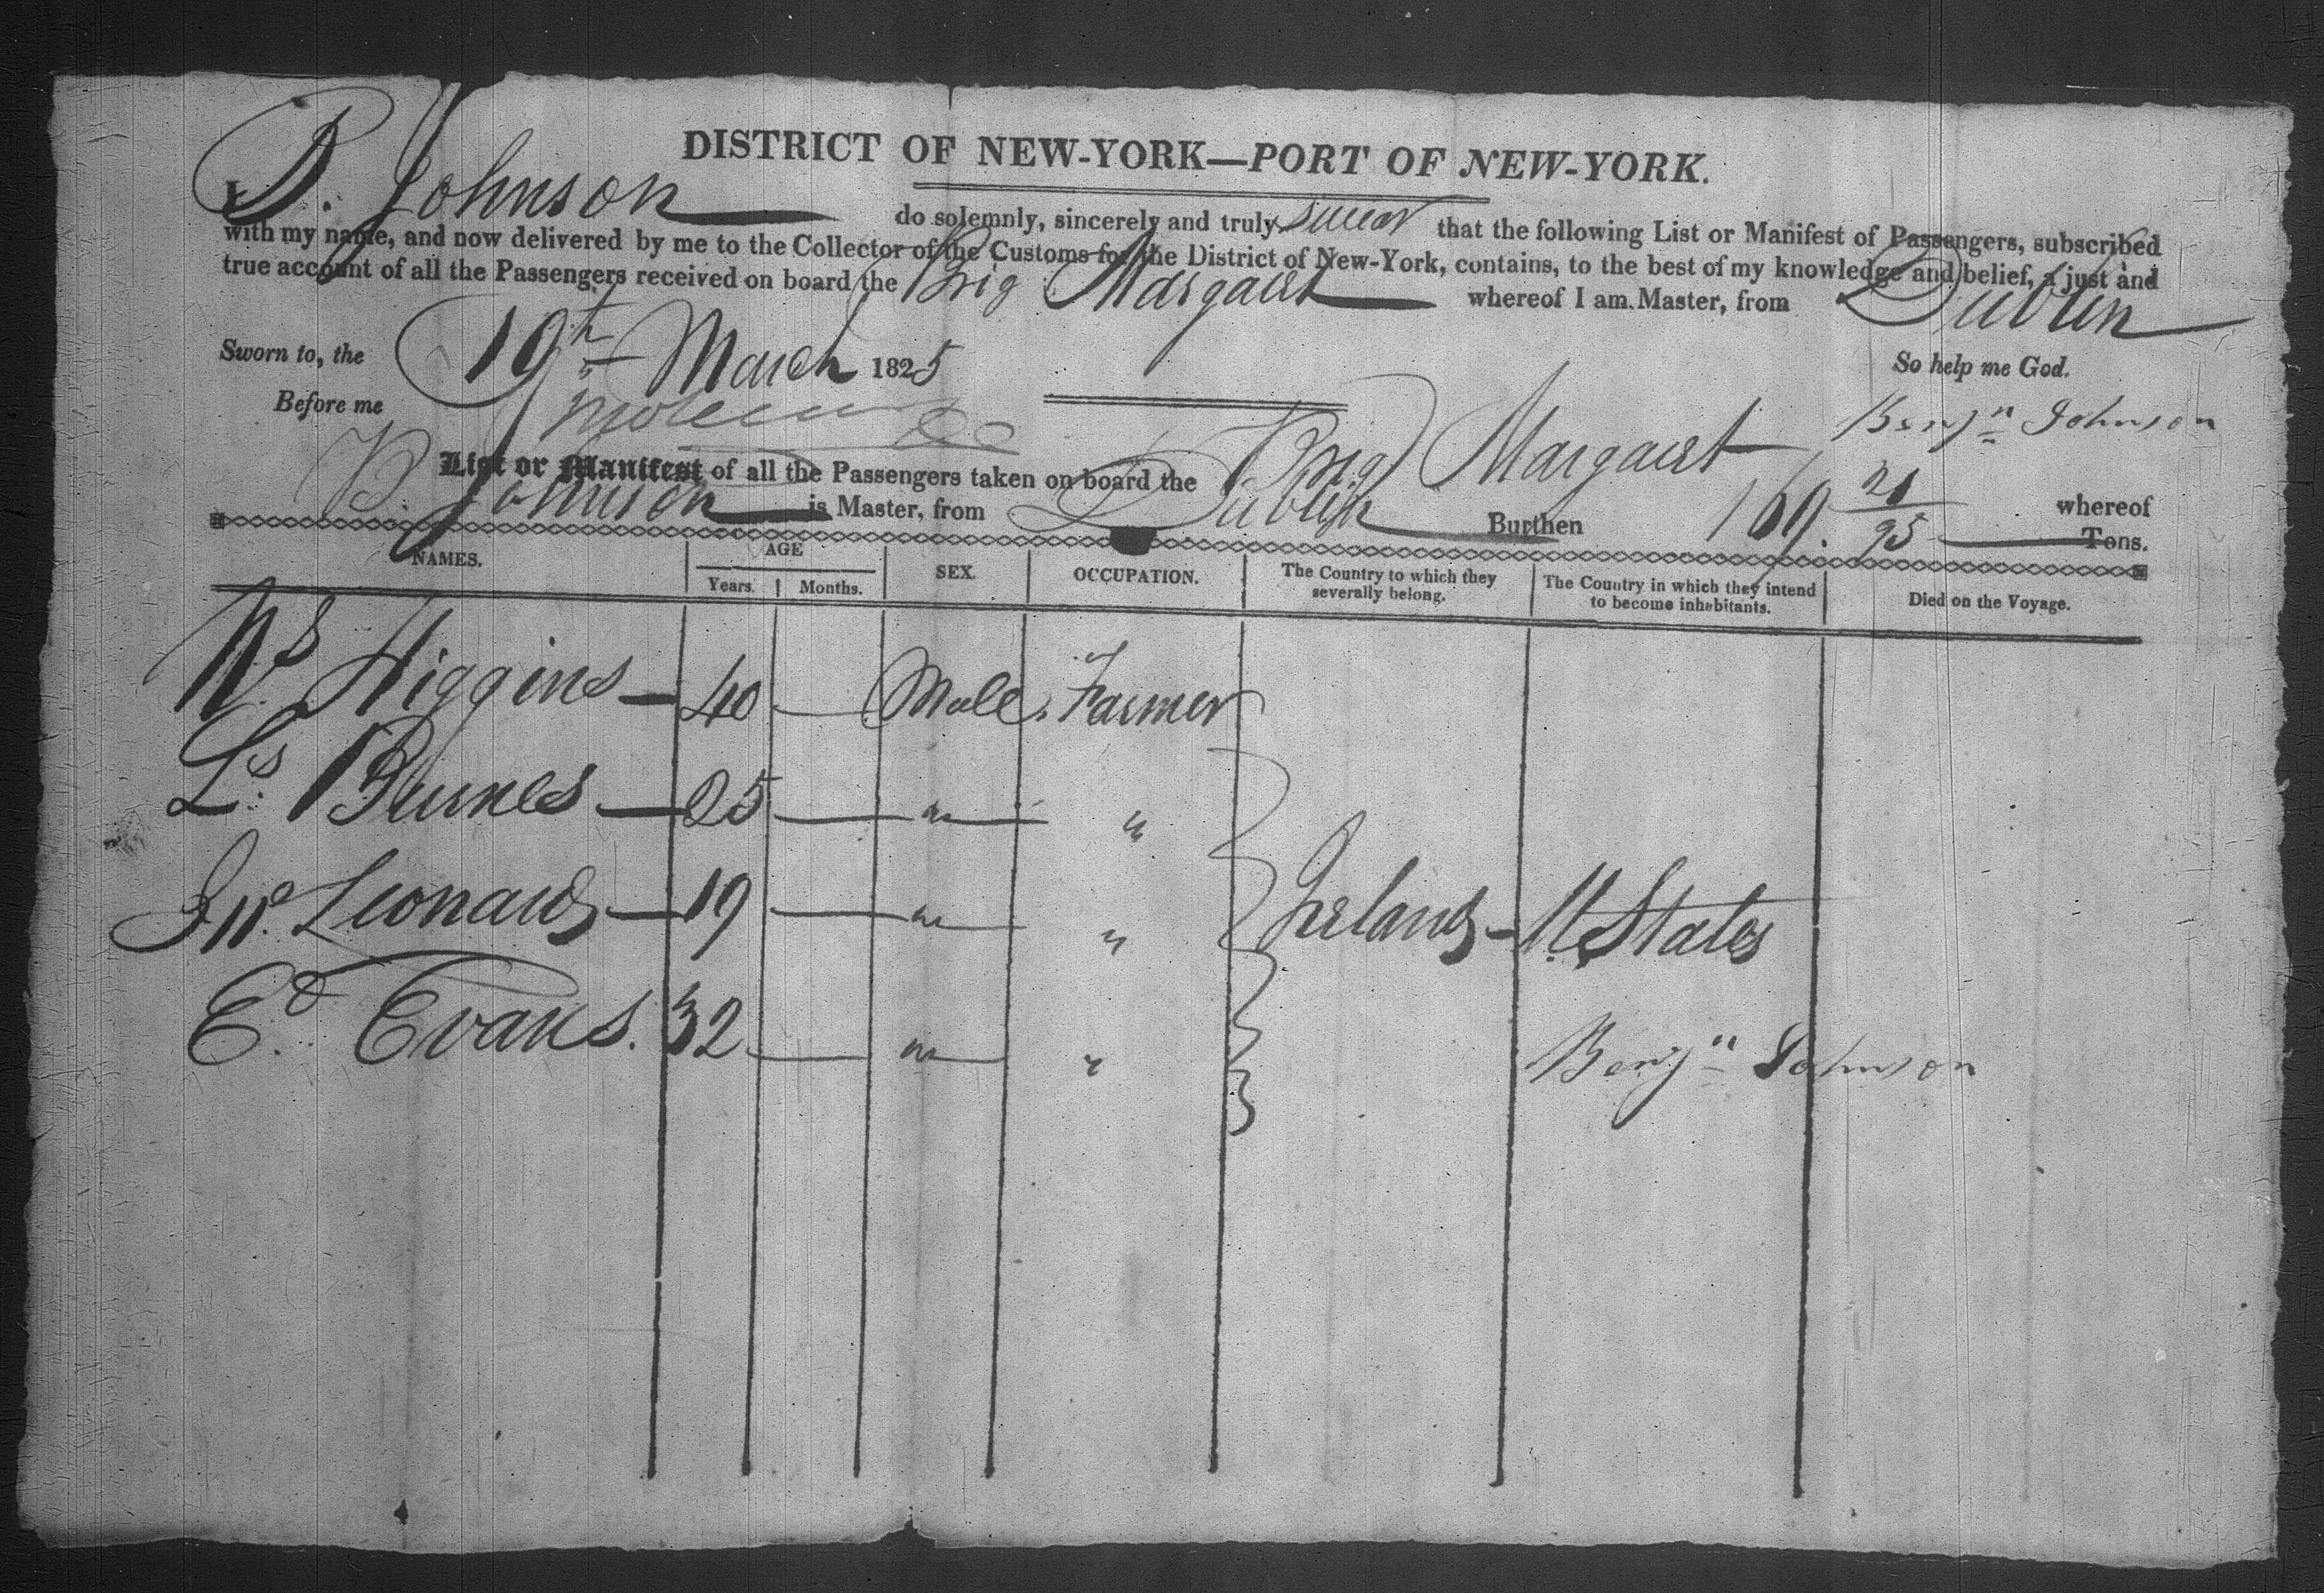 DISTRICT OF NEW-YORK—PORT OF NEW-YORK.
I, B. Johnson do solemnly, sincerely and truly swear that the following List or Manifest of Passengers, subscribed
with my name, and now delivered by me to the Collector of the Customs for the District of New-York, contains, to the best of my knowledge and belief, a just and
true account of all the Passengers received on board the Brig Margaret whereof I am Master, from Dublin
Sworn to, the 19th March 1825 So help me God.
Before me Benjn Johnson
List or Manifest of all the Passengers taken on board the Brig Margaret whereof
B. Johnson is Master, from Dublin Burthen 169. 21/95 Tons.
NAMES. AGE SEX. OCCUPATION. The Country to which they severally belong. The Country in which they intend to become inhabitants. Died on the Voyage.
Years. Months.
Higgins — 40 — Male. Farmer
Ls. Burnes — 25 — " "
Jno. Leonard — 19 — " " Ireland - U. States
Ed. Evans. 32 — " "
Benjn Johnson